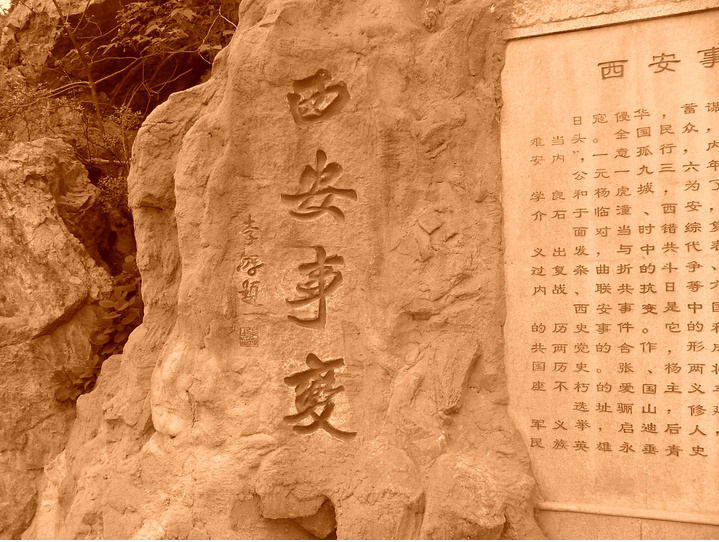 西安事變
題
西安事
日寇侵华，蓄谋
难当头。全国民众，
安内”，一意孤行，内
公元一九三六年
学良和杨虎城，为了
介石于临潼、西安，
面对当时错综复
义出发，与中共代表、
过复杂、曲折的斗争
内战、联共抗日等六
西安事变是中国
的历史事件。它的和
共两党的合作，形成
国历史。张、杨两将
座不朽的爱国主义
选址骊山，修建
军义举，启迪后人，
民族英雄永垂青史